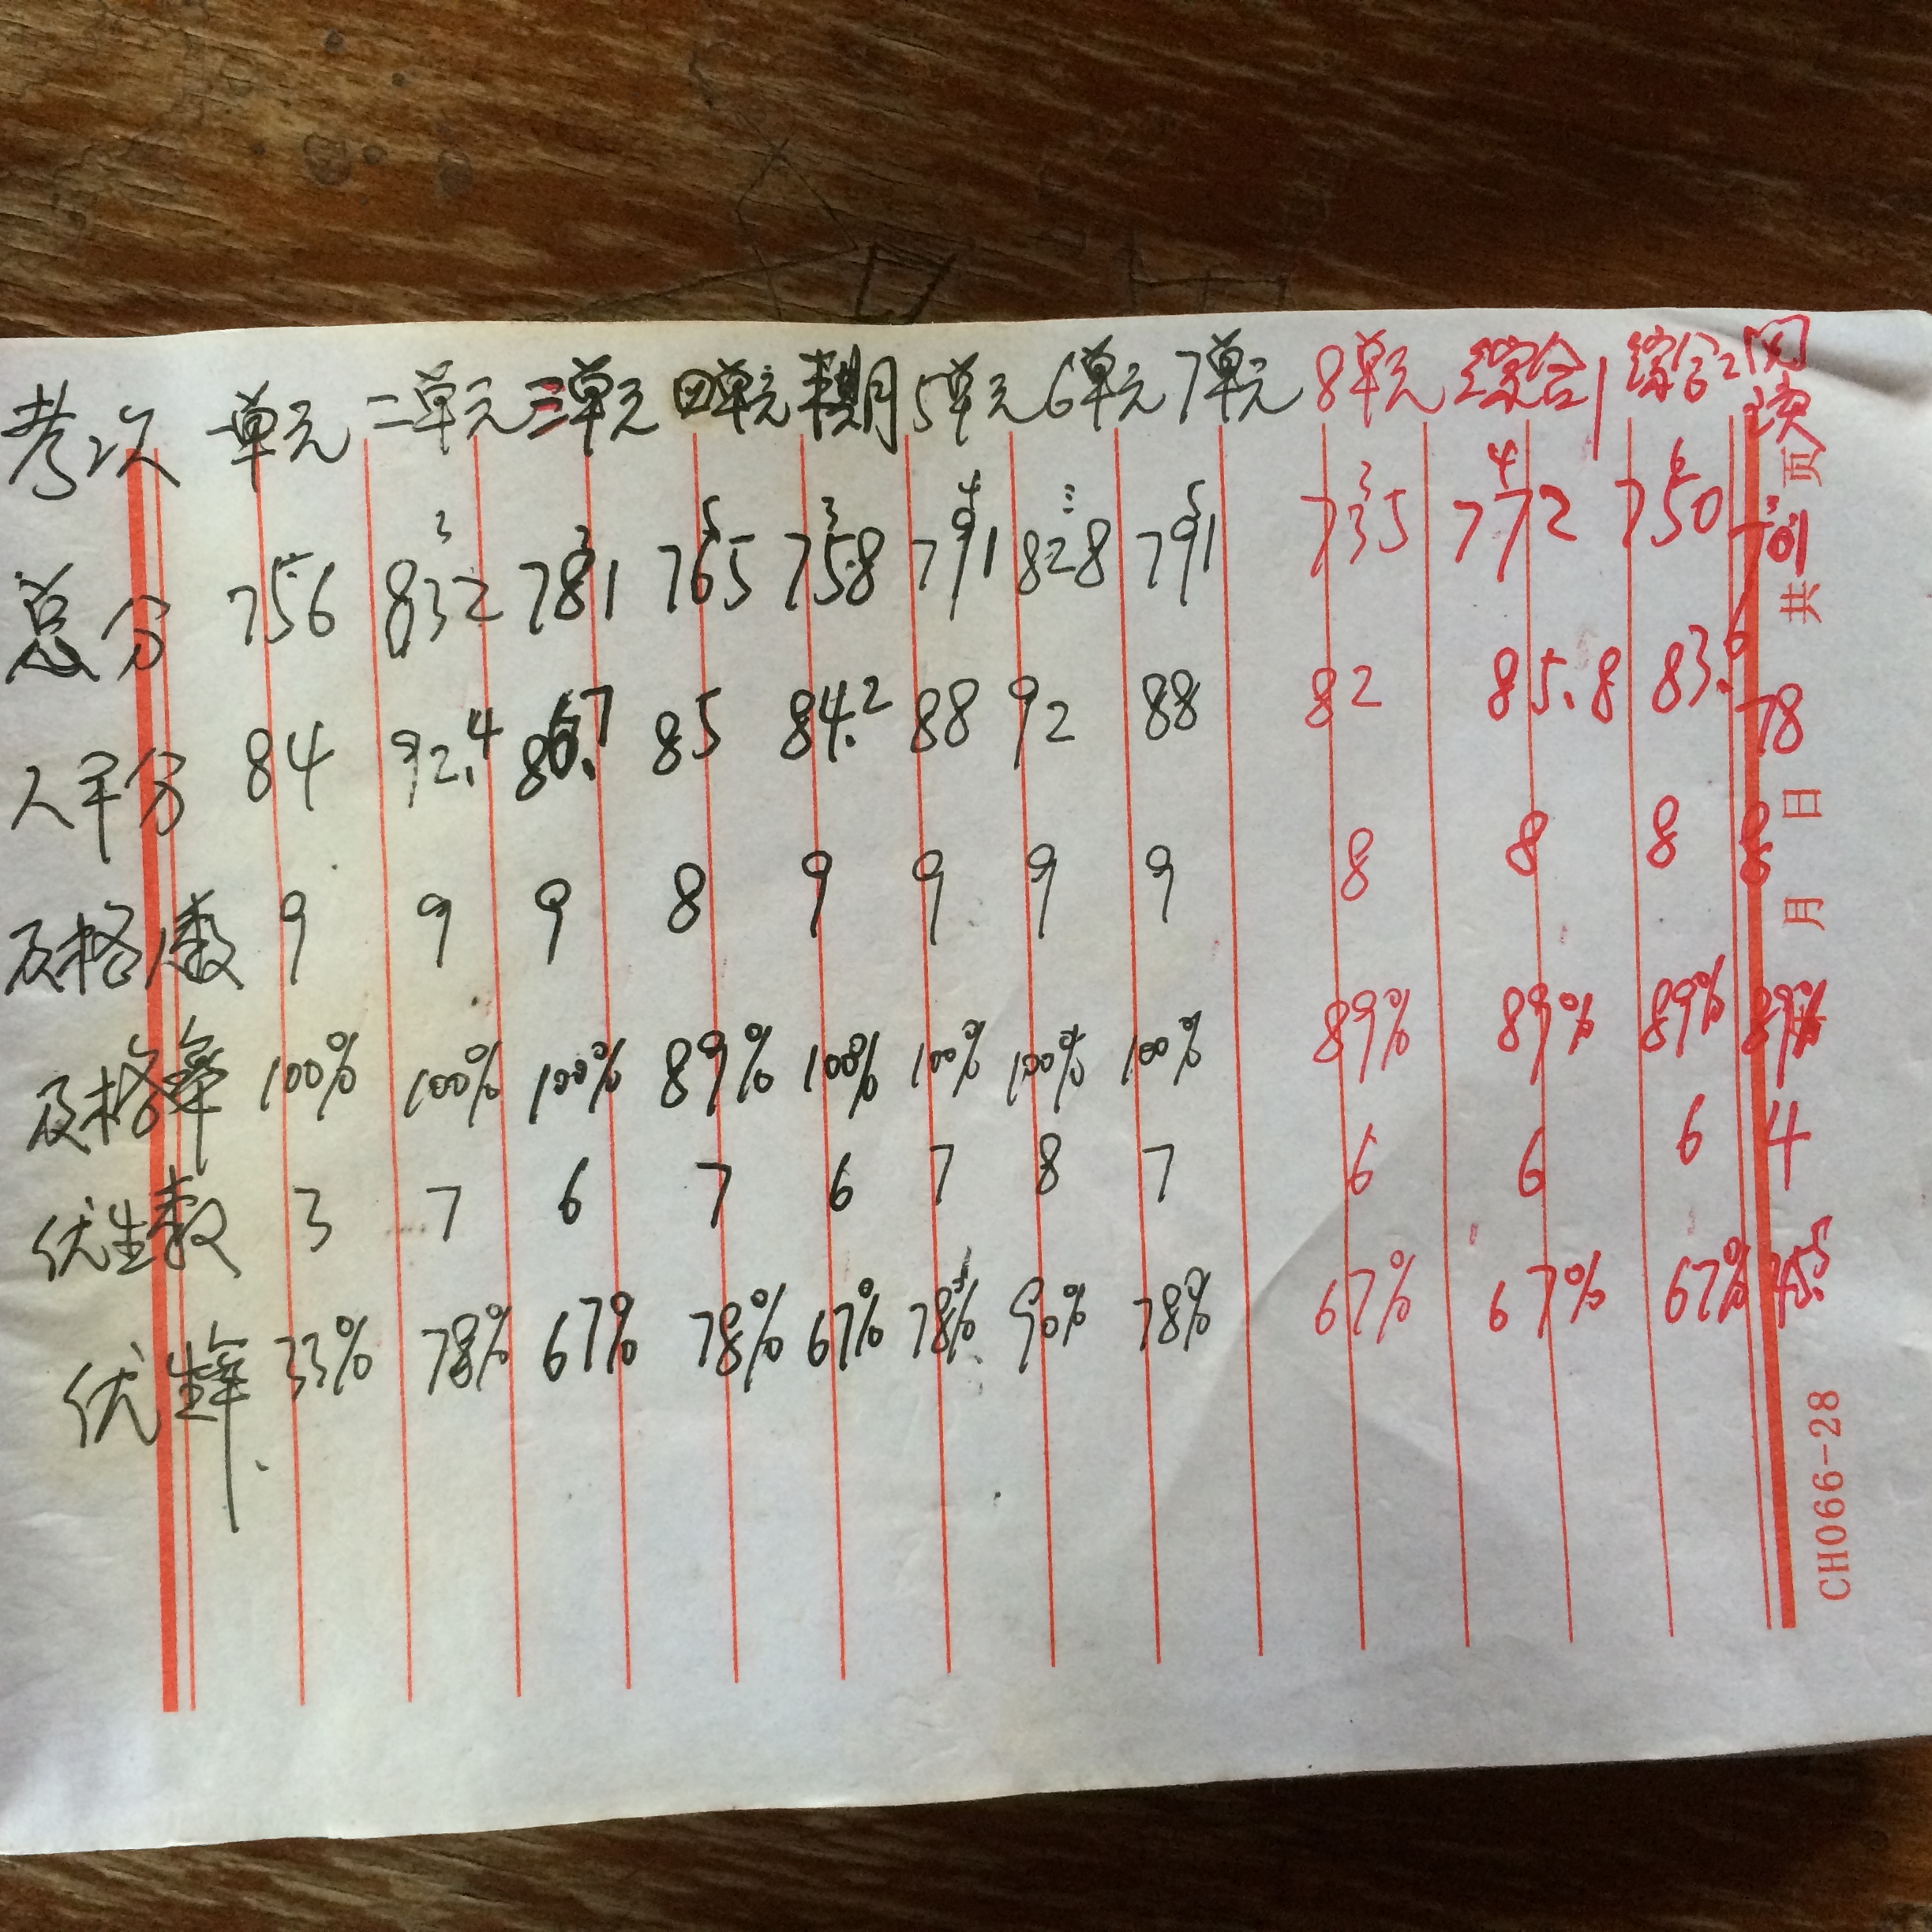 考次 一单元 二单元 三单元 四单元 半期 5单元 6单元 7单元 8单元 综合1 综合2 阅读
总分 756 832 781 765 758 791 828 791 735 772 750 701
人平分 84 92.4 86.7 85 84.2 88 92 88 82 85.8 83.6 78
及格人数 9 9 9 8 9 9 9 9 8 8 8 8
及格率 100% 100% 100% 89% 100% 100% 100% 100% 89% 89% 89% 89%
优生数 3 7 6 7 6 7 8 7 6 6 6 4
优生率 33% 78% 67% 78% 67% 78% 90% 78% 67% 67% 67%
月 日 共 页
CH066-28